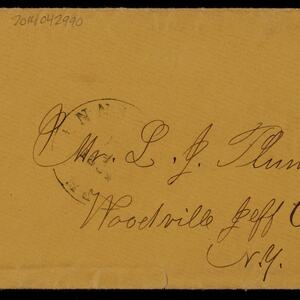 2014042990
Mr. L. J. Plum
Woodville Jeff C
N.Y.